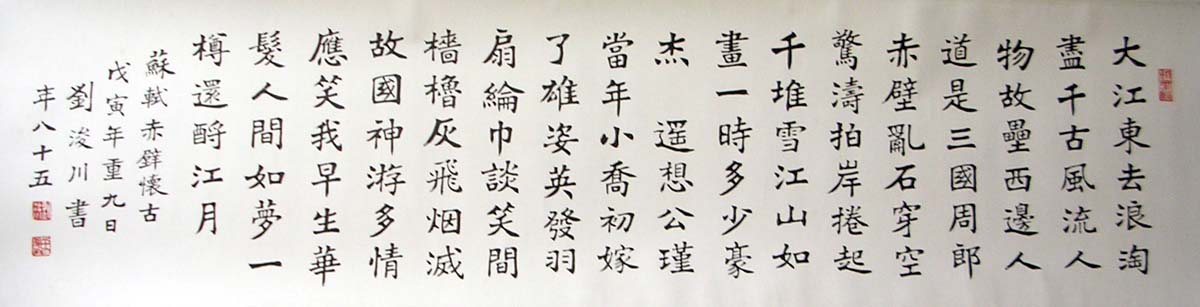 大江東去浪淘
盡千古風流人
物故壘西邊人
道是三國周郎
赤壁亂石穿空
驚濤拍岸捲起
千堆雪江山如
畫一時多少豪
杰 遥想公瑾
當年小喬初嫁
了雄姿英發羽
扇綸巾談笑間
檣櫓灰飛烟滅
故國神游多情
應笑我早生華
髮人間如夢一
樽還酹江月
蘇軾赤壁懷古
戊寅年重九日
劉浚川書
年八十五